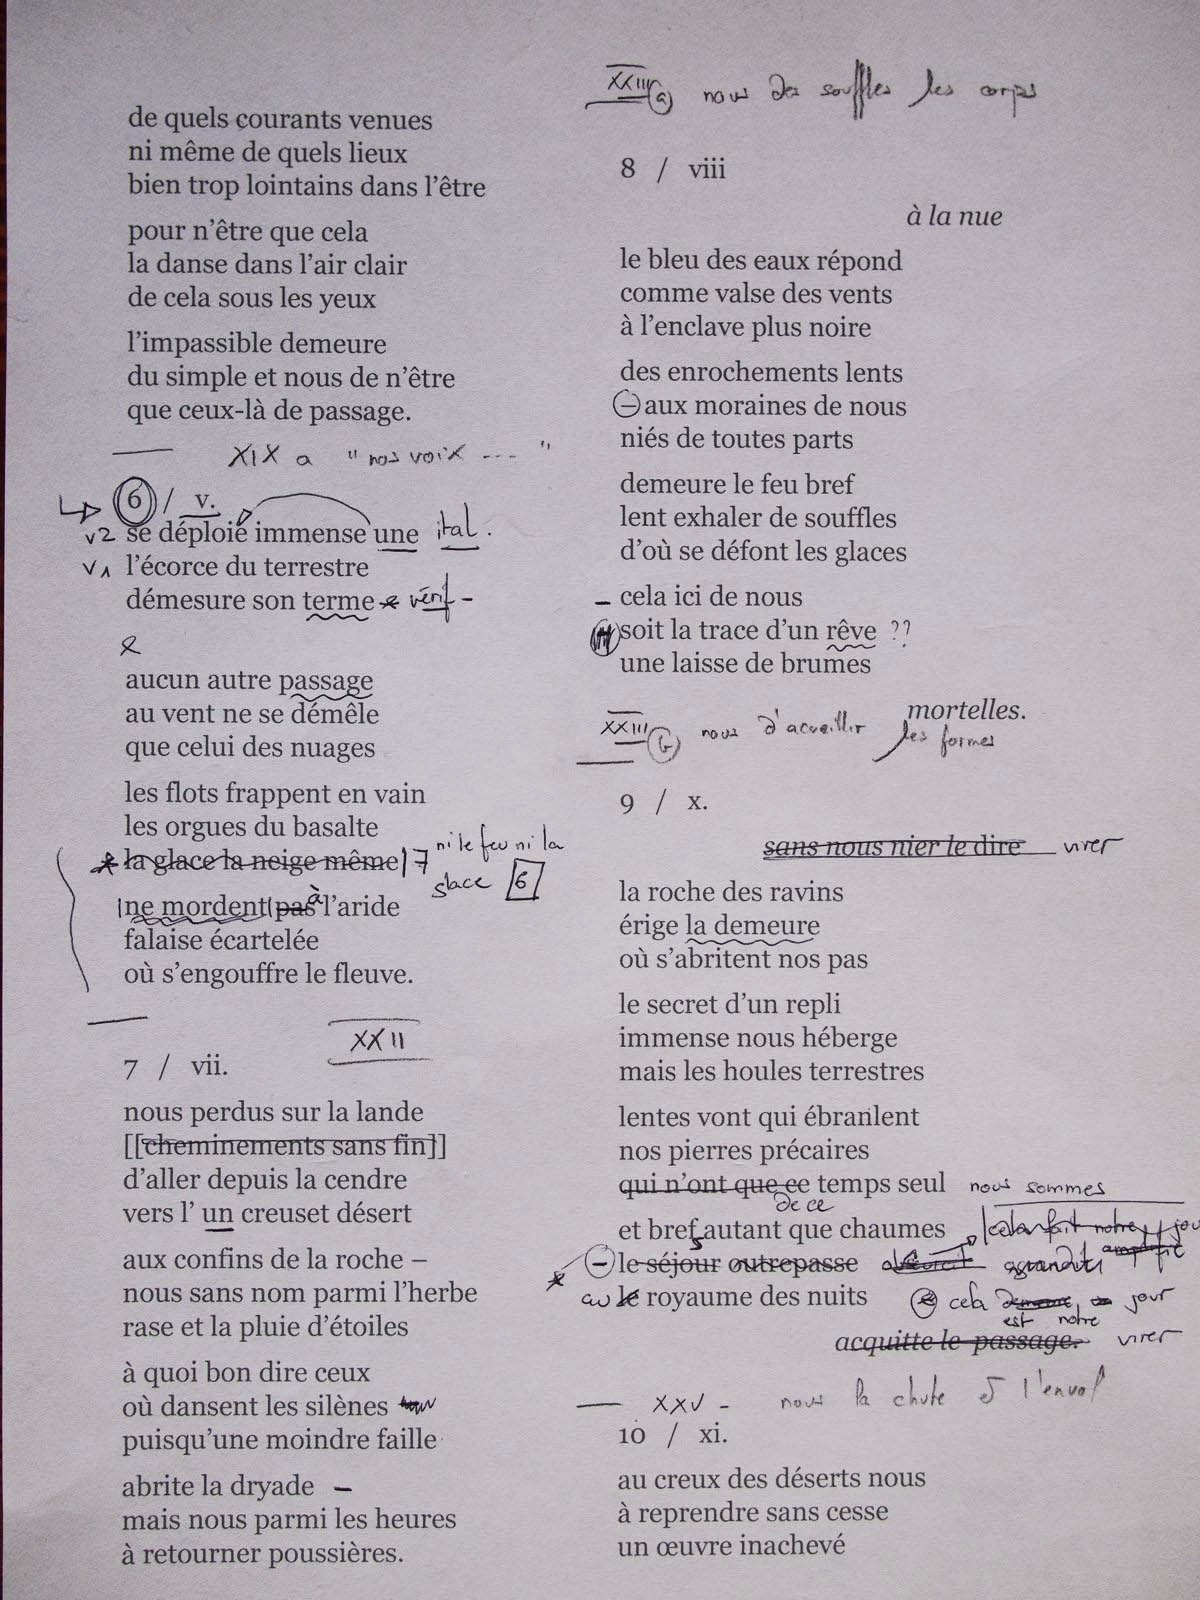 de quels courants venues
ni même de quels lieux
bien trop lointains dans l’être
pour n’être que cela
la danse dans l’air clair
de cela sous les yeux
l’impassible demeure
du simple et nous de n’être
que ceux-là de passage.
XIX a "nos voix ---- "
6 / v.
v2 se déploie immense une ital.
v1 l’écorce du terrestre
démesure son terme vérif -
aucun autre passage
au vent ne se démêle
que celui des nuages
les flots frappent en vain
les orgues du basalte
la glace la neige même 7 ni le feu ni la
glace 6
ne mordent pas à l’aride
falaise écartelée
où s’engouffre le fleuve.
XXII
7 / vii.
nous perdus sur la lande
[[cheminements sans fin]]
d’aller depuis la cendre
vers l’ un creuset désert
aux confins de la roche –
nous sans nom parmi l’herbe
rase et la pluie d’étoiles
à quoi bon dire ceux
où dansent les silènes
puisqu’une moindre faille
abrite la dryade –
mais nous parmi les heures
à retourner poussières.
XXIII (a) nous des souffles les corps
8 / viii
à la nue
le bleu des eaux répond
comme valse des vents
à l’enclave plus noire
des enrochements lents
– aux moraines de nous
niés de toutes parts
demeure le feu bref
lent exhaler de souffles
d’où se défont les glaces
– cela ici de nous
soit la trace d’un rêve ??
une laisse de brumes
mortelles.
XXIII (b) nous d'acueillir les formes
9 / x.
sans nous nier le dire virer
la roche des ravins
érige la demeure
où s’abritent nos pas
le secret d’un repli
immense nous héberge
mais les houles terrestres
lentes vont qui ébranlent
nos pierres précaires
qui n’ont que ce temps seul nous sommes
de ce
et brefs autant que chaumes cela fait notre jour
– le séjour outrepasse agrandit amplifié
au le royaume des nuits cela demeure jour
est notre
acquitte le passage. virer
XXV - nous la chute et l'envol
10 / xi.
au creux des déserts nous
à reprendre sans cesse
un œuvre inachevé